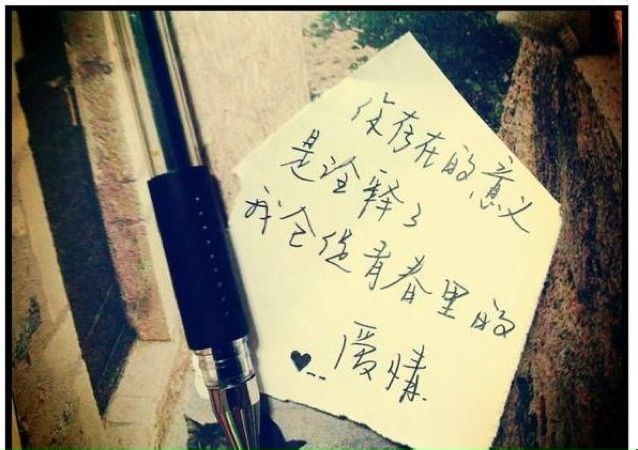 你存在的意义
是诠释了
我仓促青春里的
♥.. 爱情